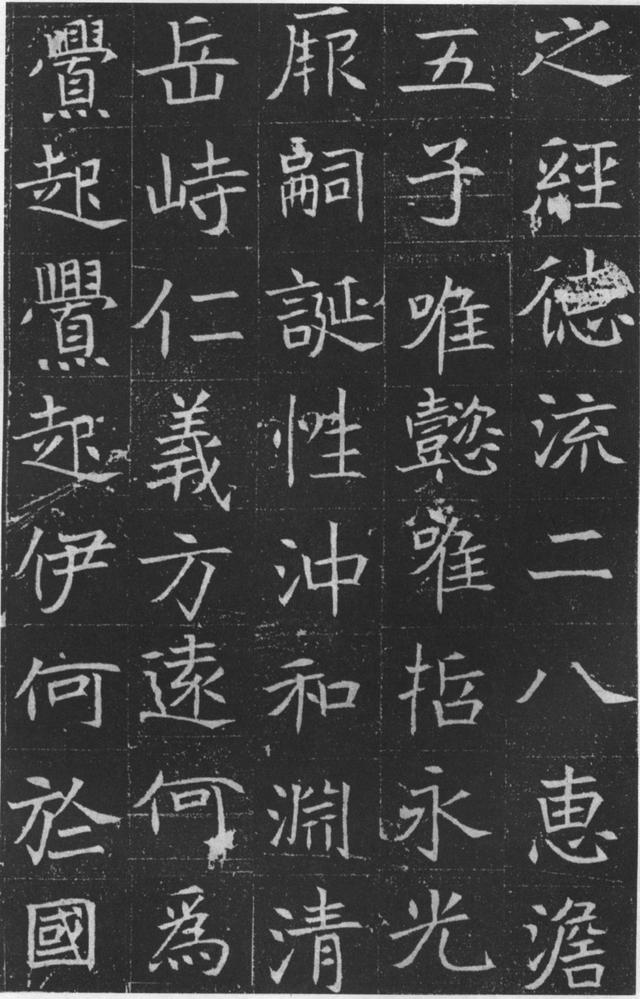 之經德流二八惠澹
五子唯懿唯哲永光
厥嗣誕性沖和淵清
岳峙仁義方遠何為
亹起亹起伊何於國